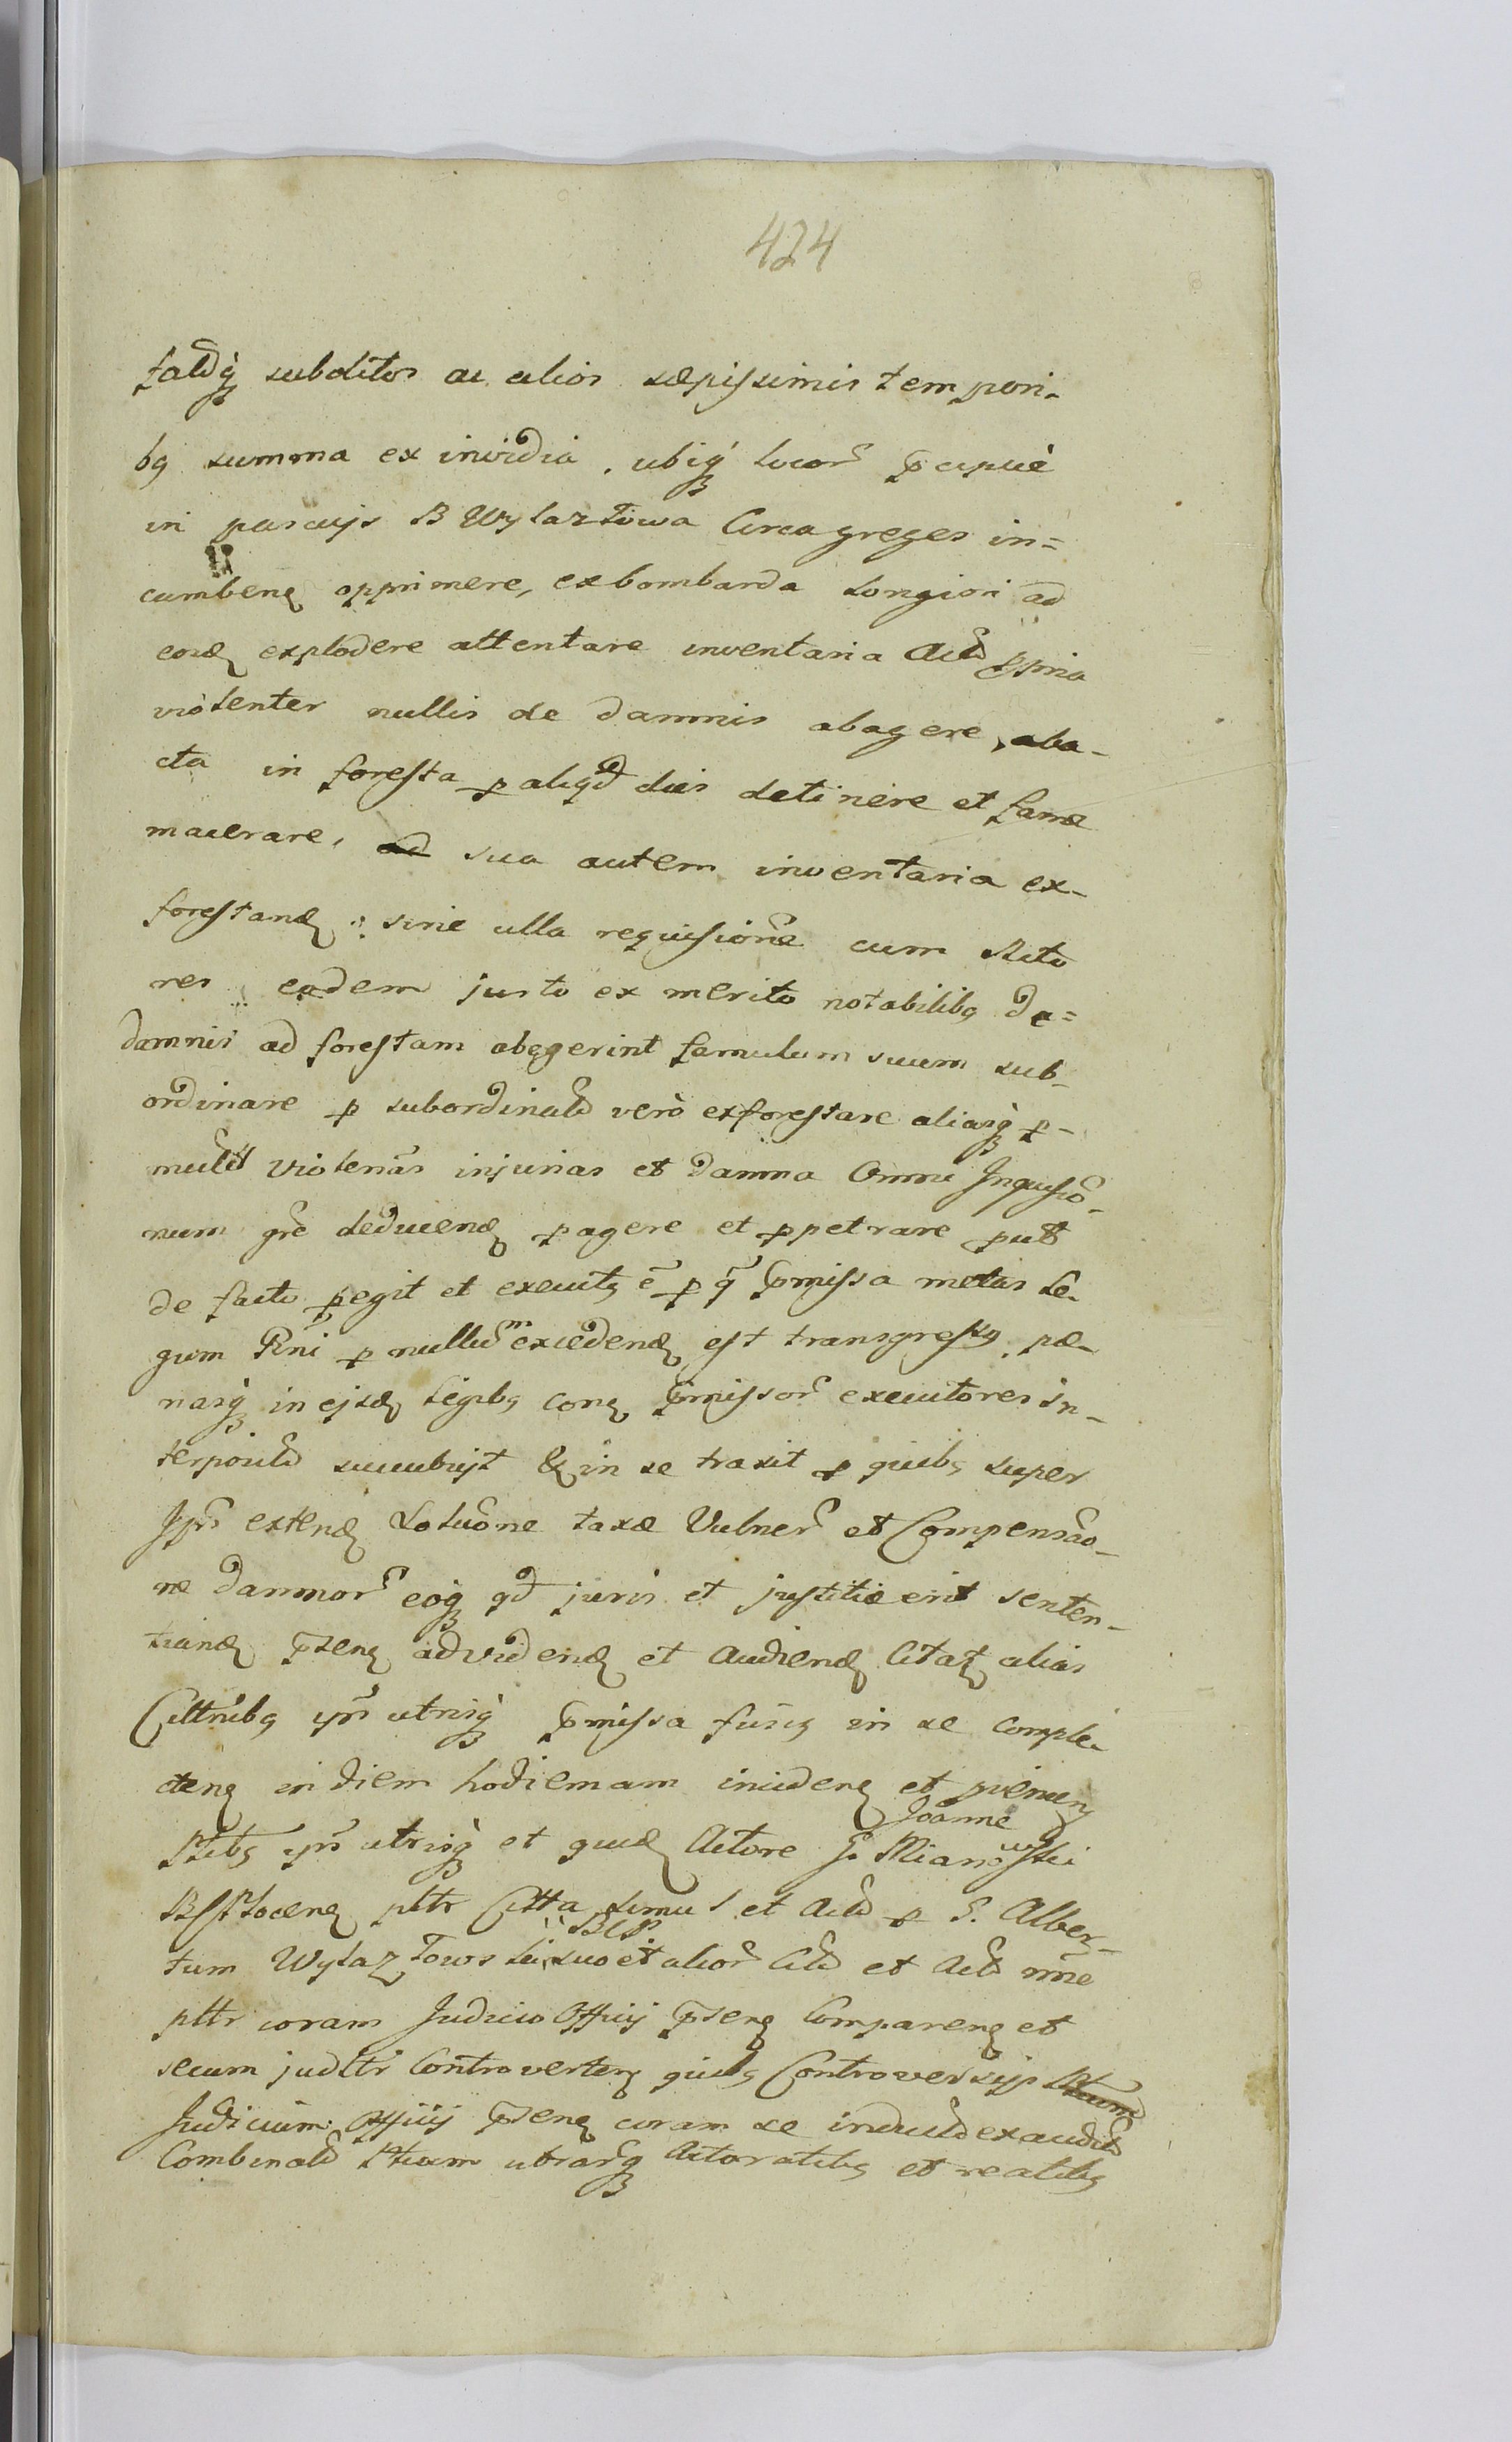 424
taldq subditos ac alios sæpissimis tempori-
bq summa ex invidia, ubiq locor pcipuè
in pascujs B Wylaztowa Circa greges in=
cumbenq opprimere, ex bombarda longiori ad
eosd explodere attentare inventaria Actd ppria
violenter nullis de damnis abagere, aba-
cta in foresta p aliqd dies detinere et fame
macerare, sua autem inventaria ex-
forestand sine ulla requisione cum Acto
res eadem justo ex merito notabilibq de=
damnis ad forestam abegerint famulum suum sub-
ordinare p subordinatd verò exforestare aliasq p-
multd violenas injurias et damna Omni Inquisio-
num gre deducend pagere et ppetrare put
de facto pegit et executq e p q pmissa metas Le-
gum Rni p nullum excedend est transgressq, pœ-
nasq in ejsd legibq conq pmissor executores in-
terpositd succubujt & in se traxit p quibq super
Ipsi extend Solucone taxæ Vulner et Compensao-
ne damnor eoq qd juris et justitiæ erit senten-
tiand psenq ad videnď et Audiend Citatq alias
Cittnibq ipsi utrisq pmissa fusiq in se comple-
ctenq in diem hodiernam incidenq et pvenien
Ptibq ipsi utrisq et quid Actore G. Joanne Mianowski
BS Plocenq pltr Citta simul et Actd p G. Alber-
tum Wylaztowski BCP suo et alior Citd et Actd nne
pltr coram Judicio Officij psenq Comparenq et
secum judltr Controvertenq quibq Controversijs Ptium
Judicium Officij psenq coram se inductd exauditd
Combinatd Ptium utrarq Actoratibq et reatibq